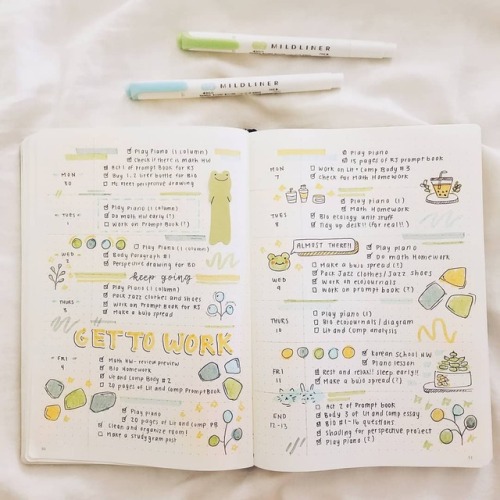 MILDLINER
MILDLINER
Play Piano (1 column)
Check if there is math HW
Act 1 of Prompt Book for RJ
Buy 1.2 liter bottle for Bio
perspective drawing
MON
30
Play Piano (1 column)
Do math HW early (!)
Work on Prompt Book (!)
TUES
1
Play Piano (1 column)
Body Paragraph #1
Perspective drawing for BD
WED
2
keep going
Play Piano (1 column)
Pack Jazz clothes and shoes
Work on Prompt Book for RJ
Make a bujo spread
THURS
3
GET TO WORK
Math HW- review preview
Bio Homework
Lit and Comp Body #2
20 pages of Lit and Comp Prompt Book
FRI
4
Play piano
20 pages of Lit and Comp PB
Clean and organize room!
Make a studygram post
Play piano
15 pages of RJ prompt book
Work on Lit+Comp Body #3
Check for math Homework
MON
7
Play piano (1)
Math Homework
Bio ecology unit stuff
Tidy up desk!! (for real!!)
TUES
8
ALMOST THERE!!
Play piano
Do math Homework
Make a bujo spread (?)
Pack Jazz clothes/Jazz shoes
Work on ecojournals
Work on prompt book (?)
WED
9
Play piano (1)
Bio ecojournals/diagram
Lit and Comp analysis
THURS
10
Korean School HW
Piano lesson
Rest and relax!! sleep early!!
Make a bujo spread (?)
FRI
11
Act 2 of Prompt Book
Body 3 of Lit and Comp essay
Bio #1-16 questions
Shading for perspective project
Play Piano (?)
END
12-13